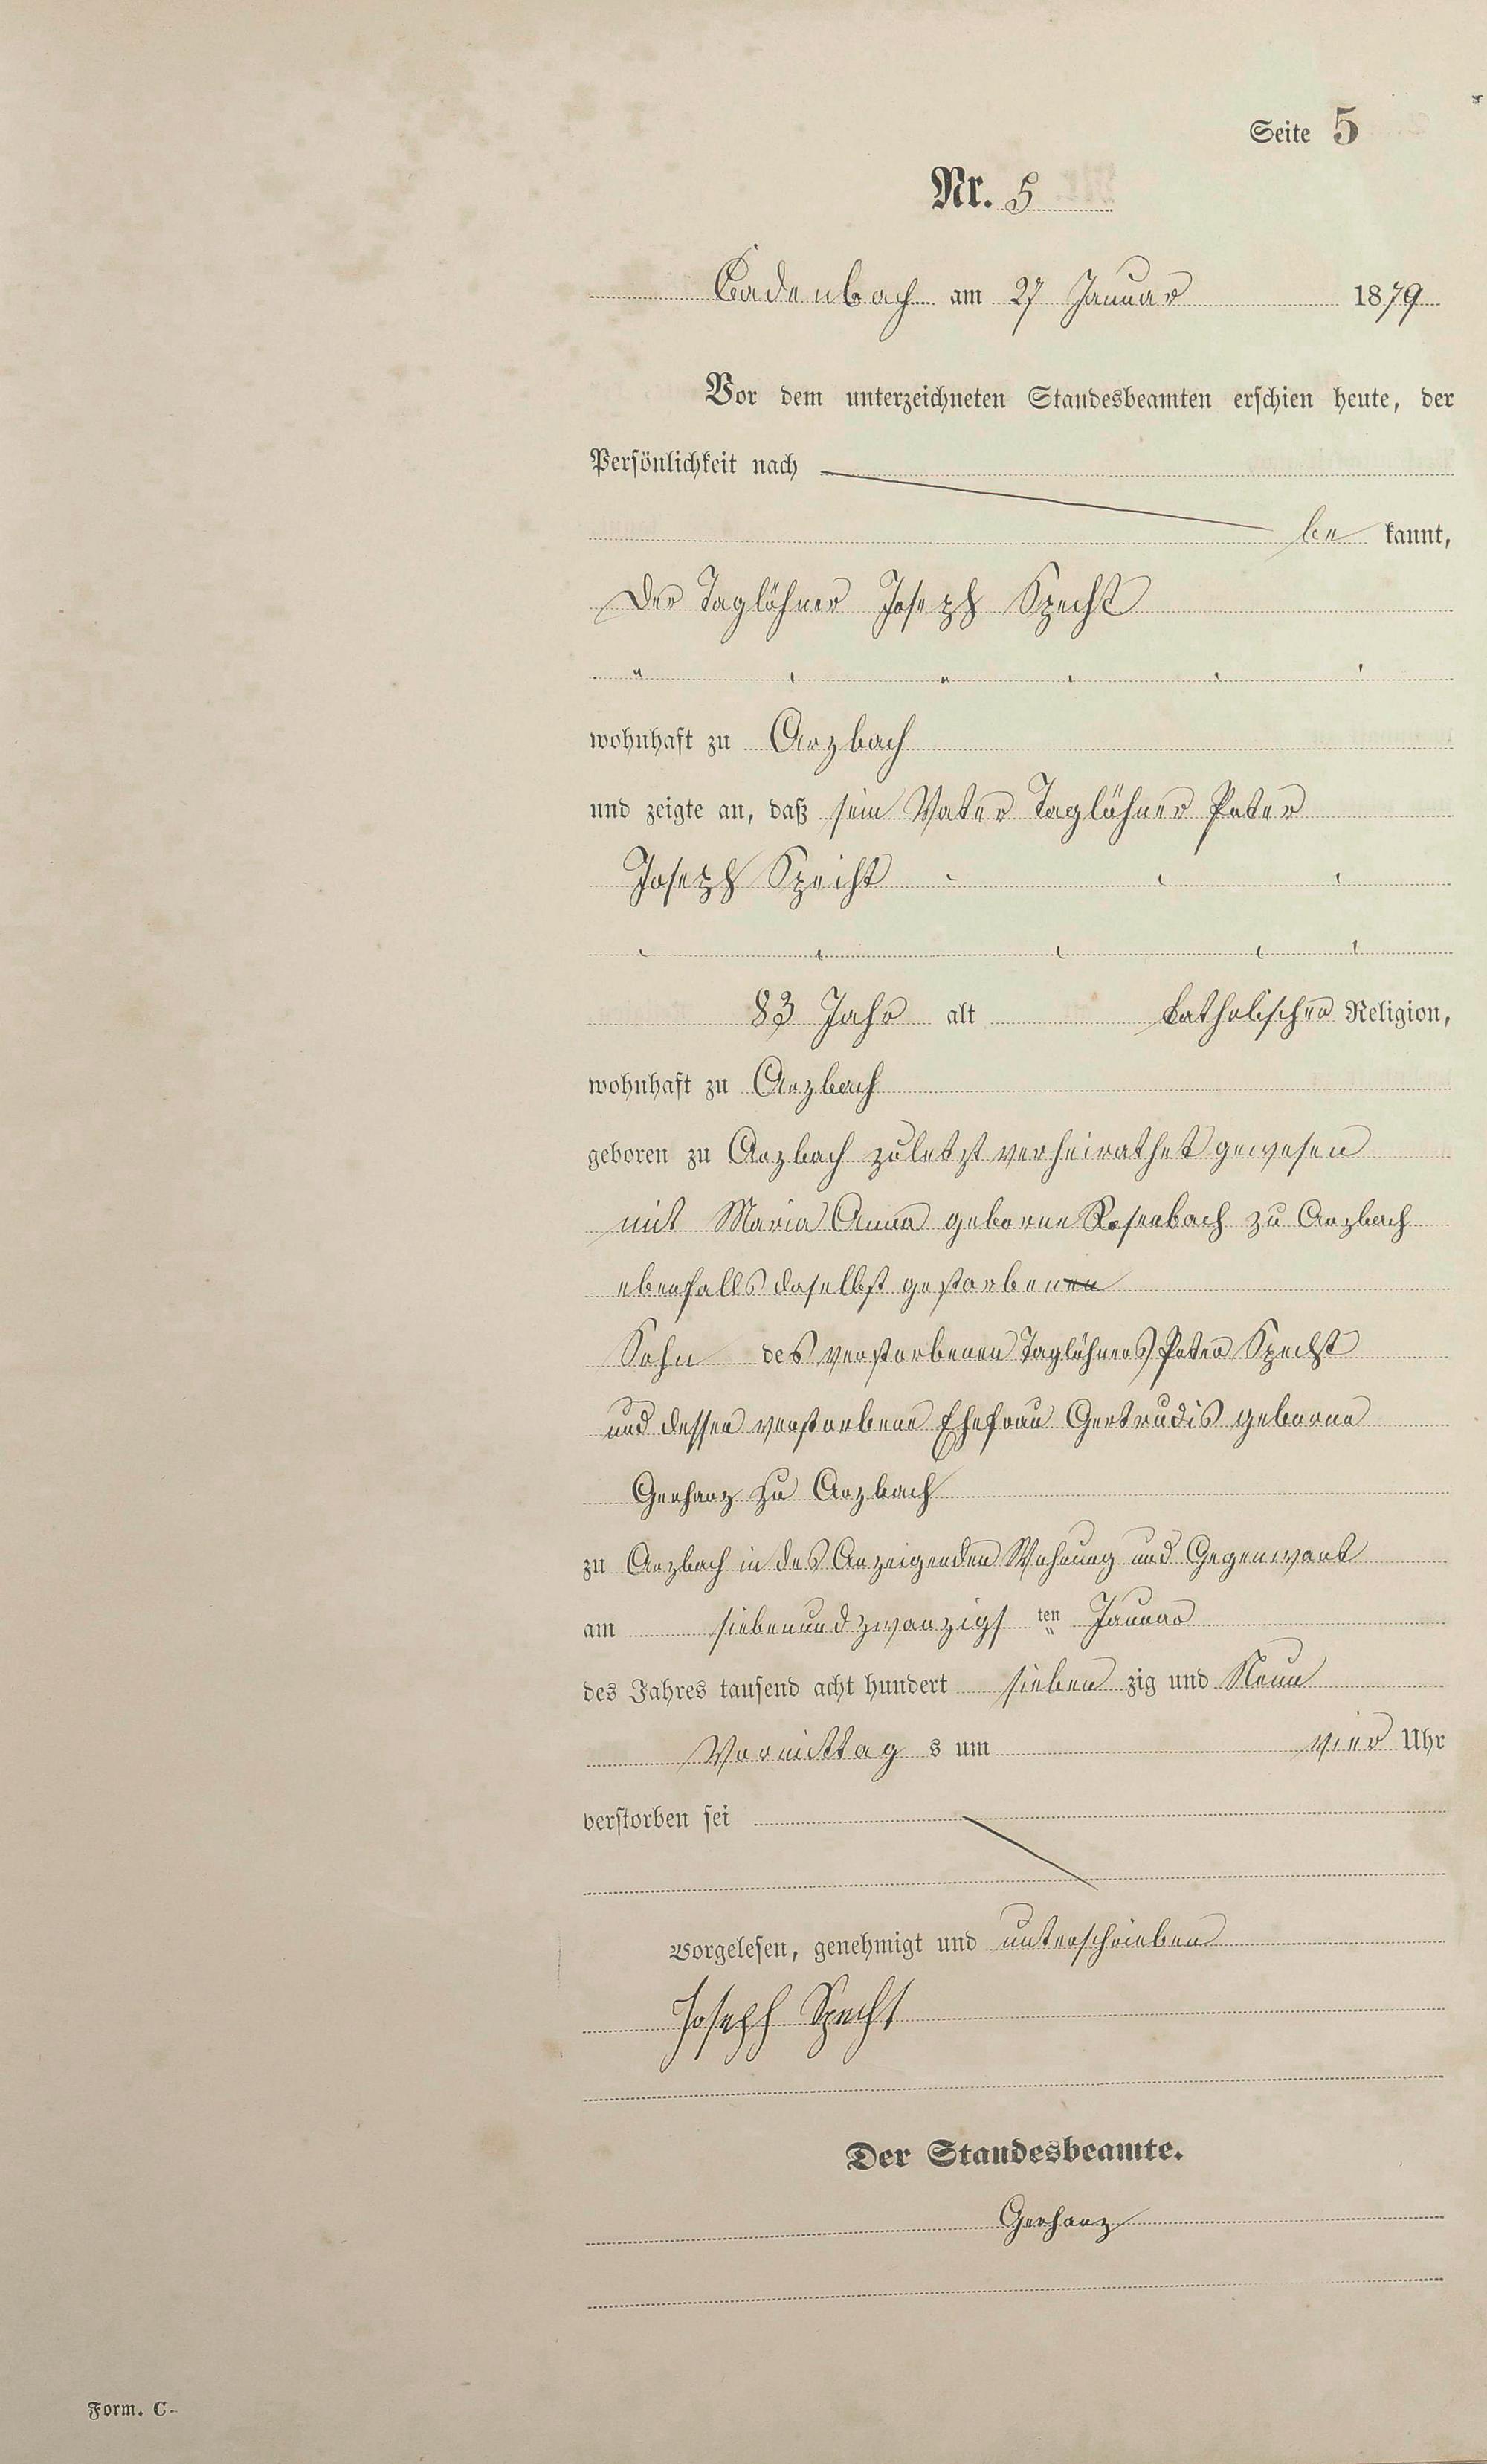 Seite 5
Nr. 5
Cadenbach am 27 Januar 1879
Vor dem unterzeichneten Standesbeamten erschien heute, der
Persönlichkeit nach
be kannt,
Der Taglöhner Joseph Specht
wohnhaft zu Arzbach
und zeigte an, daß sein Vater Taglöhner Peter
Joseph Specht
83 Jahr alt katholischer Religion,
wohnhaft zu Arzbach
geboren zu Arzbach zuletzt verheirathet gewesen
mit Maria Anna geborne Rosenbach zu Arzbach
ebenfalls daselbst gestorben
Sohn des verstorbenen Taglöhners Peter Specht
und dessen verstorbene Ehefrau Gertrudis geborne
Gerharz zu Arzbach
zu Arzbach in des Anzeigenden Wohnung und Gegenwart
am siebenundzwanzigs ten Januar
des Jahres tausend acht hundert sieben zig und Neun
Vormittag s um vier Uhr
verstorben sei
Vorgelesen, genehmigt und unterschrieben
Joseph Specht
Der Standesbeamte.
Gerharz
Form. C.